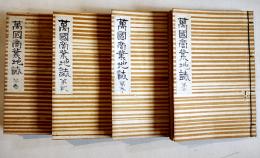 萬國商業地誌 第壹
萬國商業地誌 第貳
萬國商業地誌
萬國商業地誌